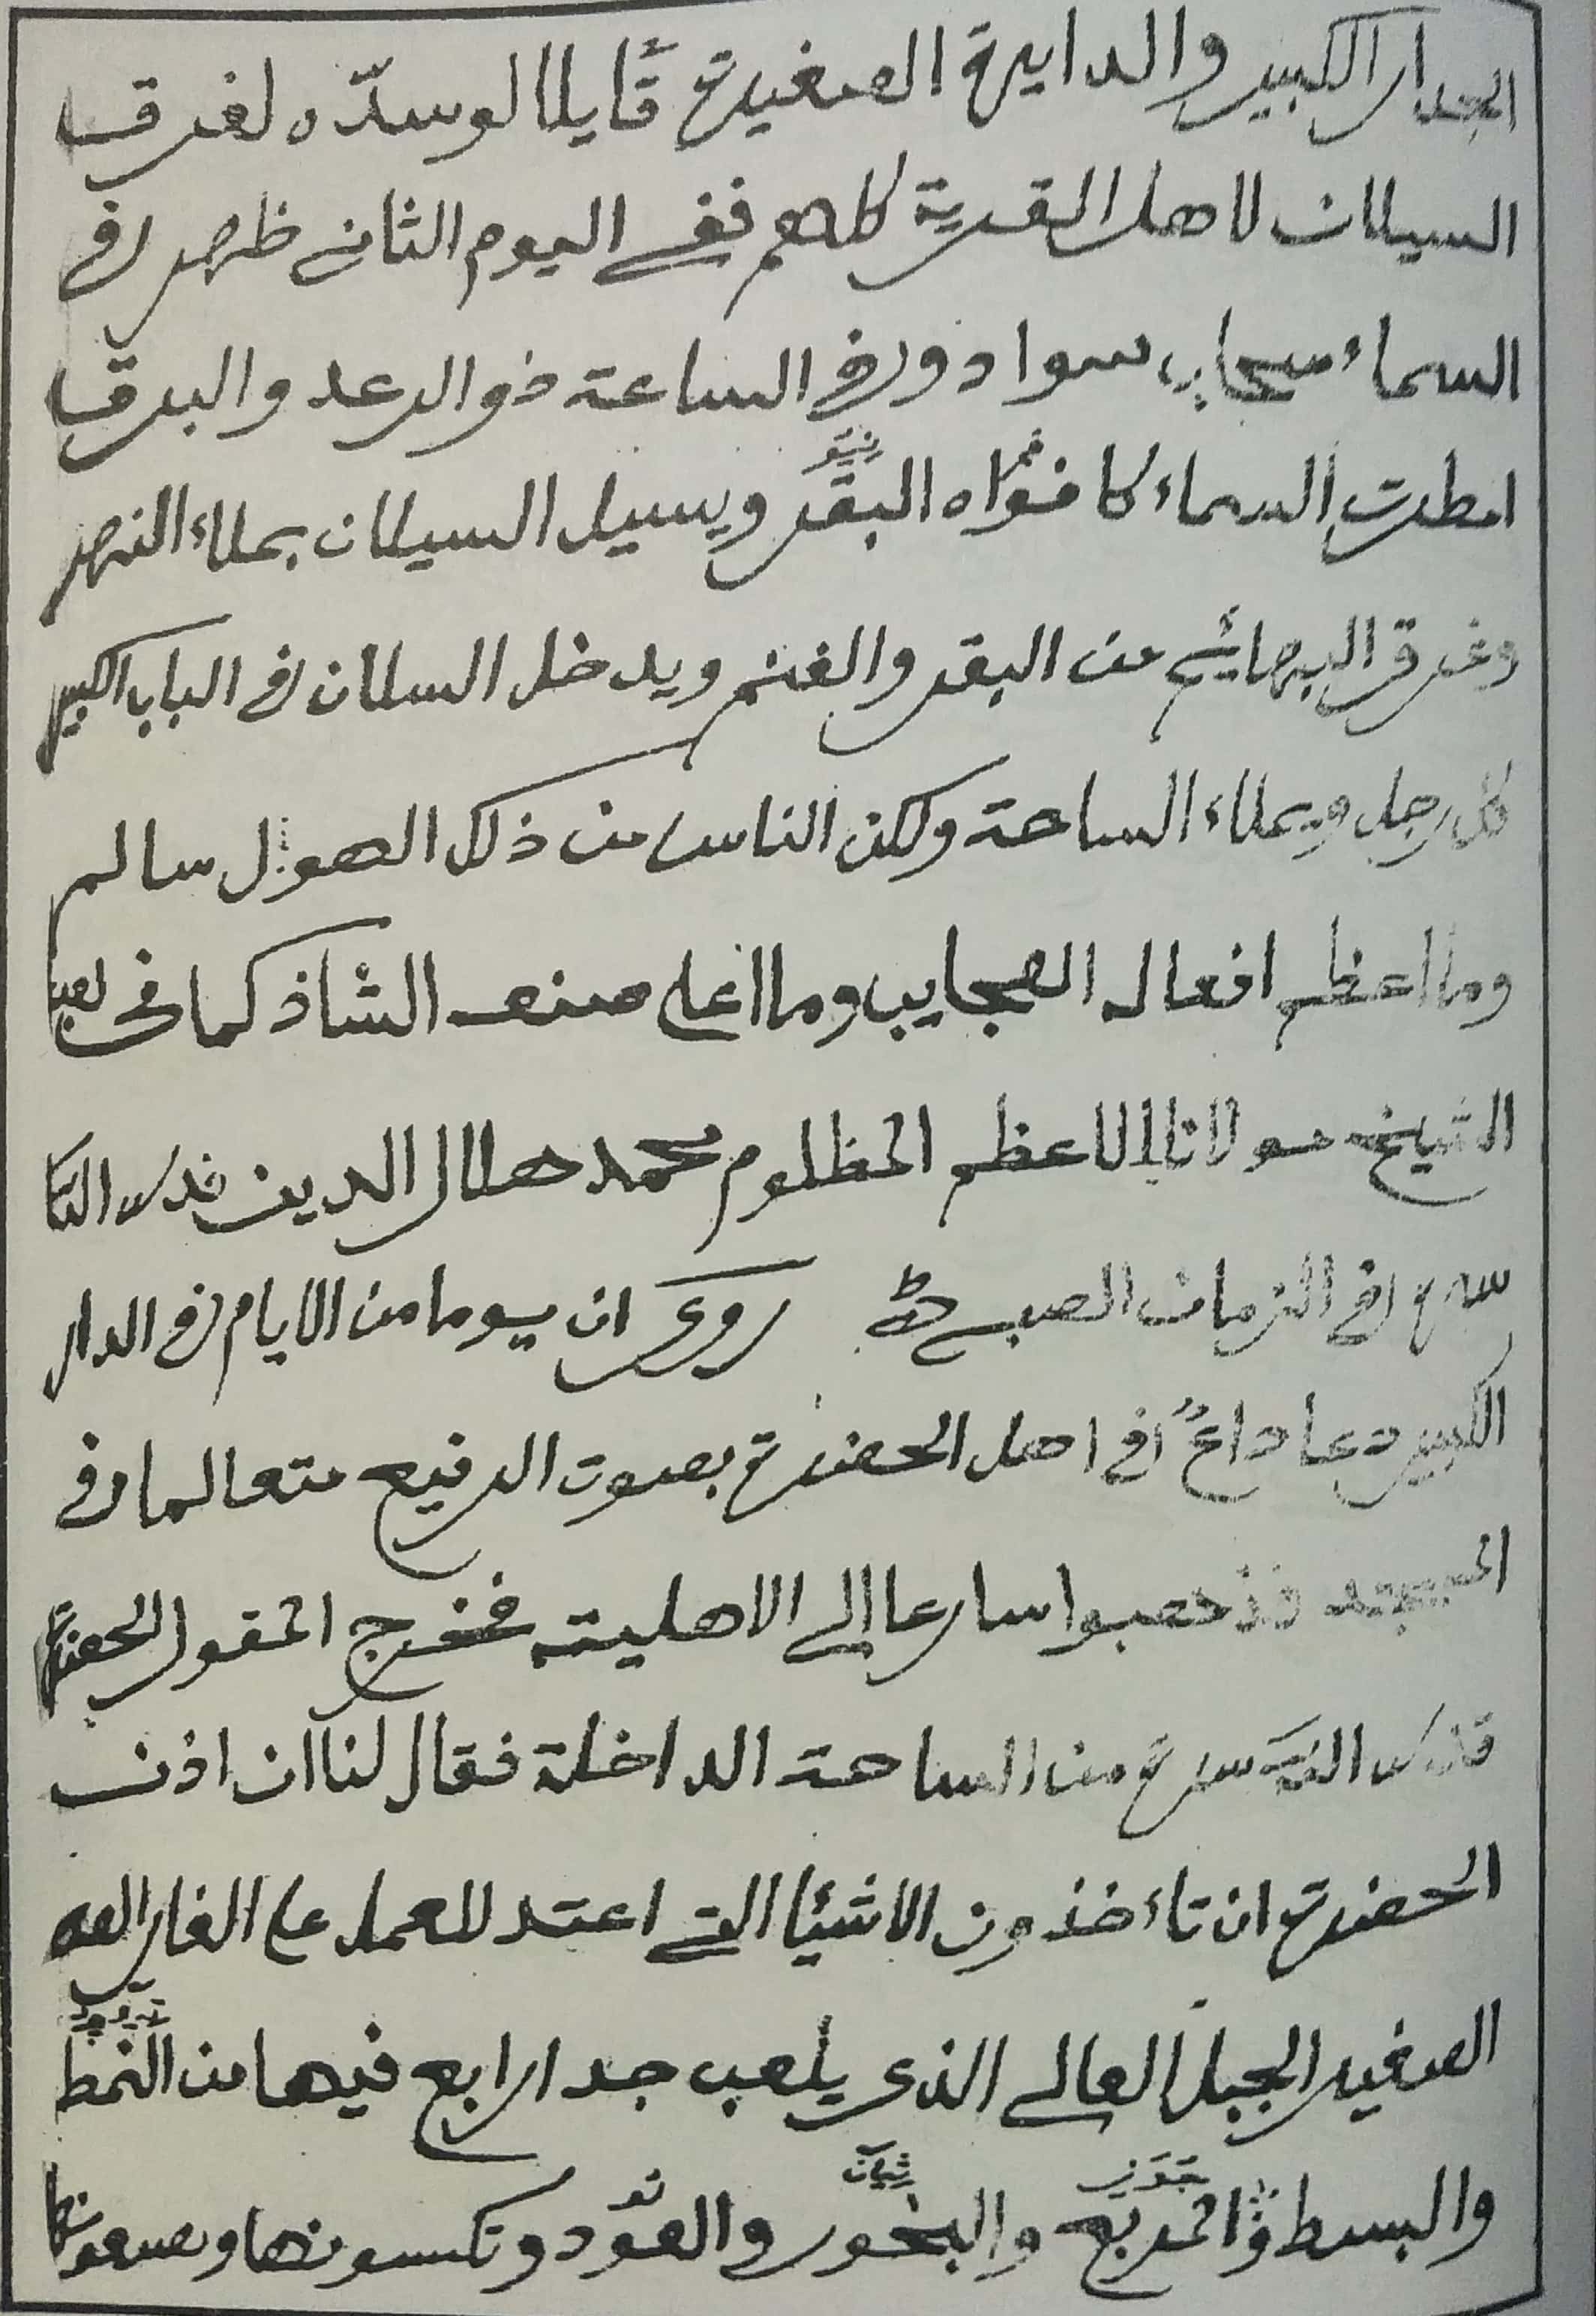 الجدار الكبير والدايرة الصغيرة قايلا لو سدّه لغرق
السيلان لاهل القرية كلهم ففي اليوم الثاني ظهر في
السماء سحاب سواد وفي الساعة ذو الرعد والبرق
امطرت السماء كافواه البقر ويسيل السيلان بملاء النهر
وغرق البهائم من البقر والغنم ويدخل السلان في الباب الكبير
كل رجل ويملاء الساحة ولكن الناس من ذلك الهول سالم
وما اعظم افعاله العجايب وما اعلى صنعه الشاذ كما في
الشيخ مولانا الاعظم المظلوم محمد هلال الدين قدس الله
سره في الزمان الصبي روى ان يوما من الايام في الدار
الكبير دعا داع في اهل الحضرة بصوت الرفيع متعالما في
المسجد فذهبوا سارعا الى الاهلية فخرج المقول الحضرة
قدس الله سره من الساحة الداخلة فقال لنا ان اذن
الحضرة ان تاءخذون الاشيئا التي اعتد للعمل على الغار
الصغير الجبل العالي الذي يلعب جدار رابع فيها من النمط
والبسط والمربع والبخور والعود وتكسونها